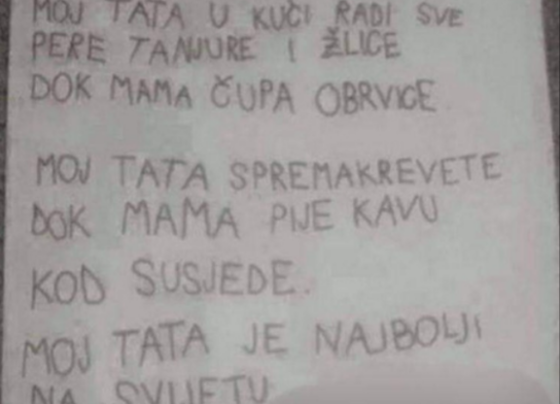 MOJ TATA U KUĆI RADI SVE
PERE TANJURE I ŽLICE
DOK MAMA ČUPA OBRVICE.
MOJ TATA SPREMAKREVETE
DOK MAMA PIJE KAVU
KOD SUSJEDE.
MOJ TATA JE NAJBOLJI
NA SVIJETU